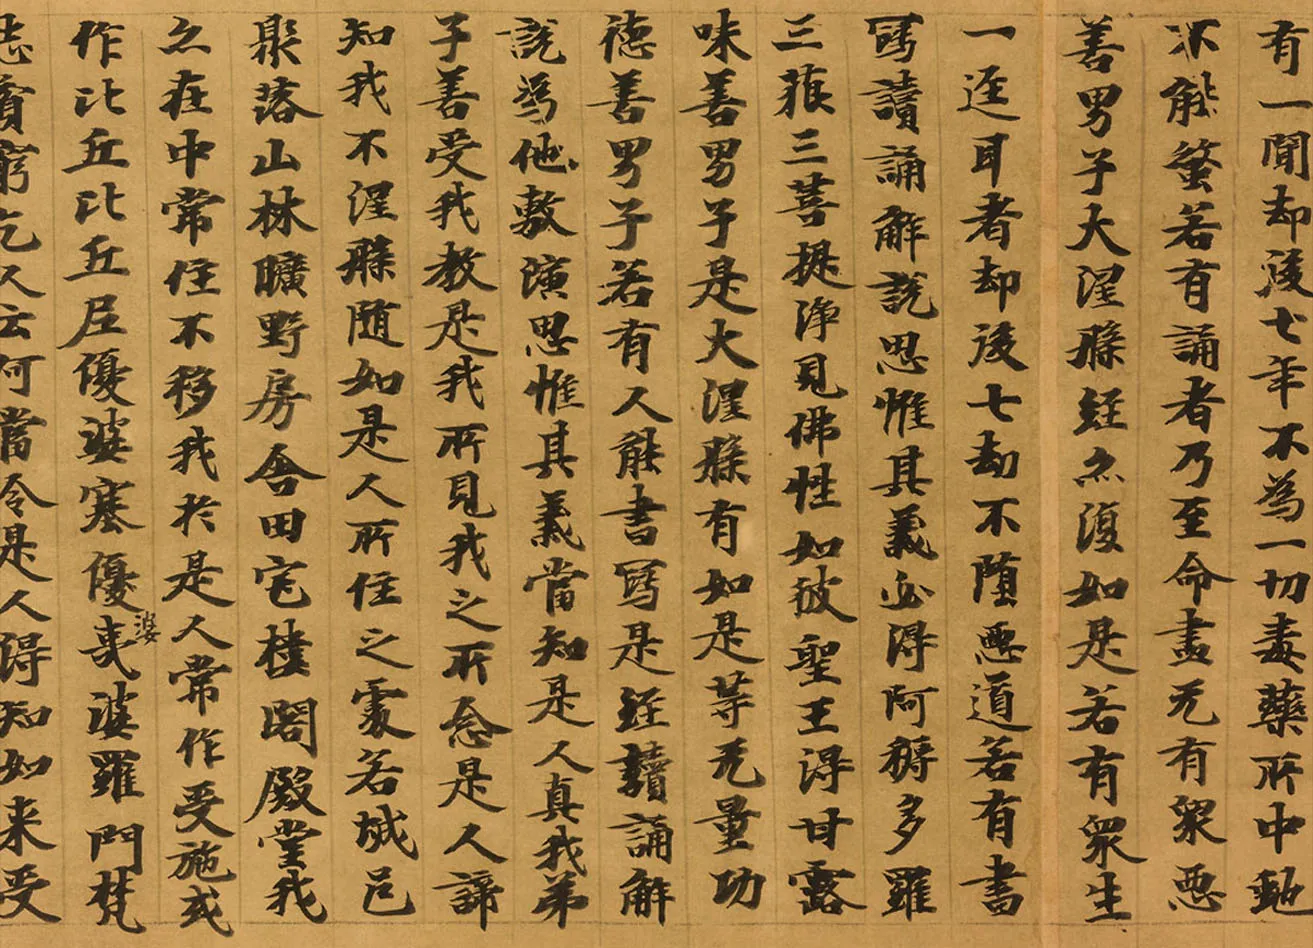 有一聞却後七年不為一切毒藥所中虵
不能螫若有誦者乃至命盡无有衆惡
善男子大涅槃經亦復如是若有衆生
一逕耳者却後七劫不墮惡道若有書
寫讀誦解說思惟其義必得阿耨多羅
三藐三菩提淨見佛性如彼聖王得甘露
味善男子是大涅槃有如是等无量功
德善男子若有人能書寫是經讀誦解
說為他敷演思惟其義當知是人真我弟
子善受我教是我所見我之所念是人諦
知我不涅槃隨如是人所住之處若城邑
聚落山林曠野房舍田宅樓閣殿堂我
亦在中常住不移我於是人常作受施或
作比丘比丘尼優婆塞優婆夷婆羅門梵
志貧窮乞人云何當令是人得知如來受